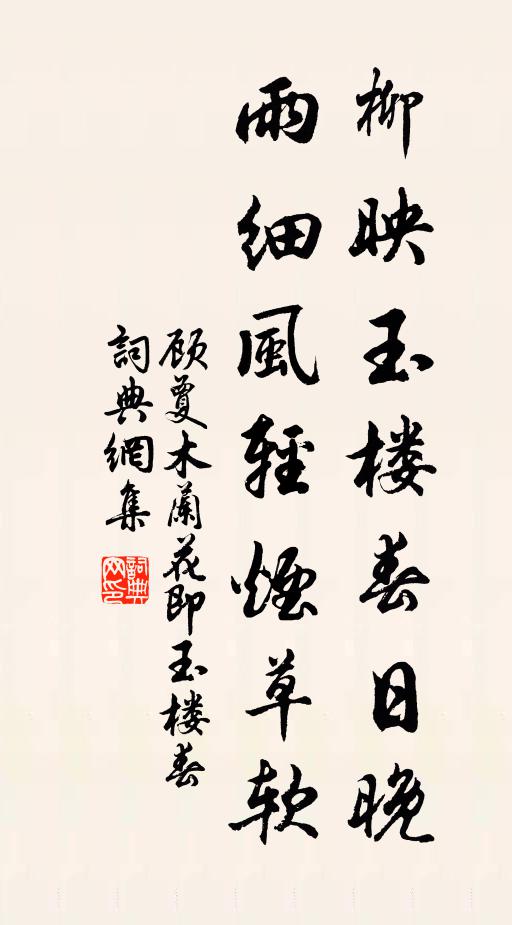 柳映玉楼春日晚
雨细風輕煙草软
顾夐木蘭花即玉楼春
詞典網集
詞典网印